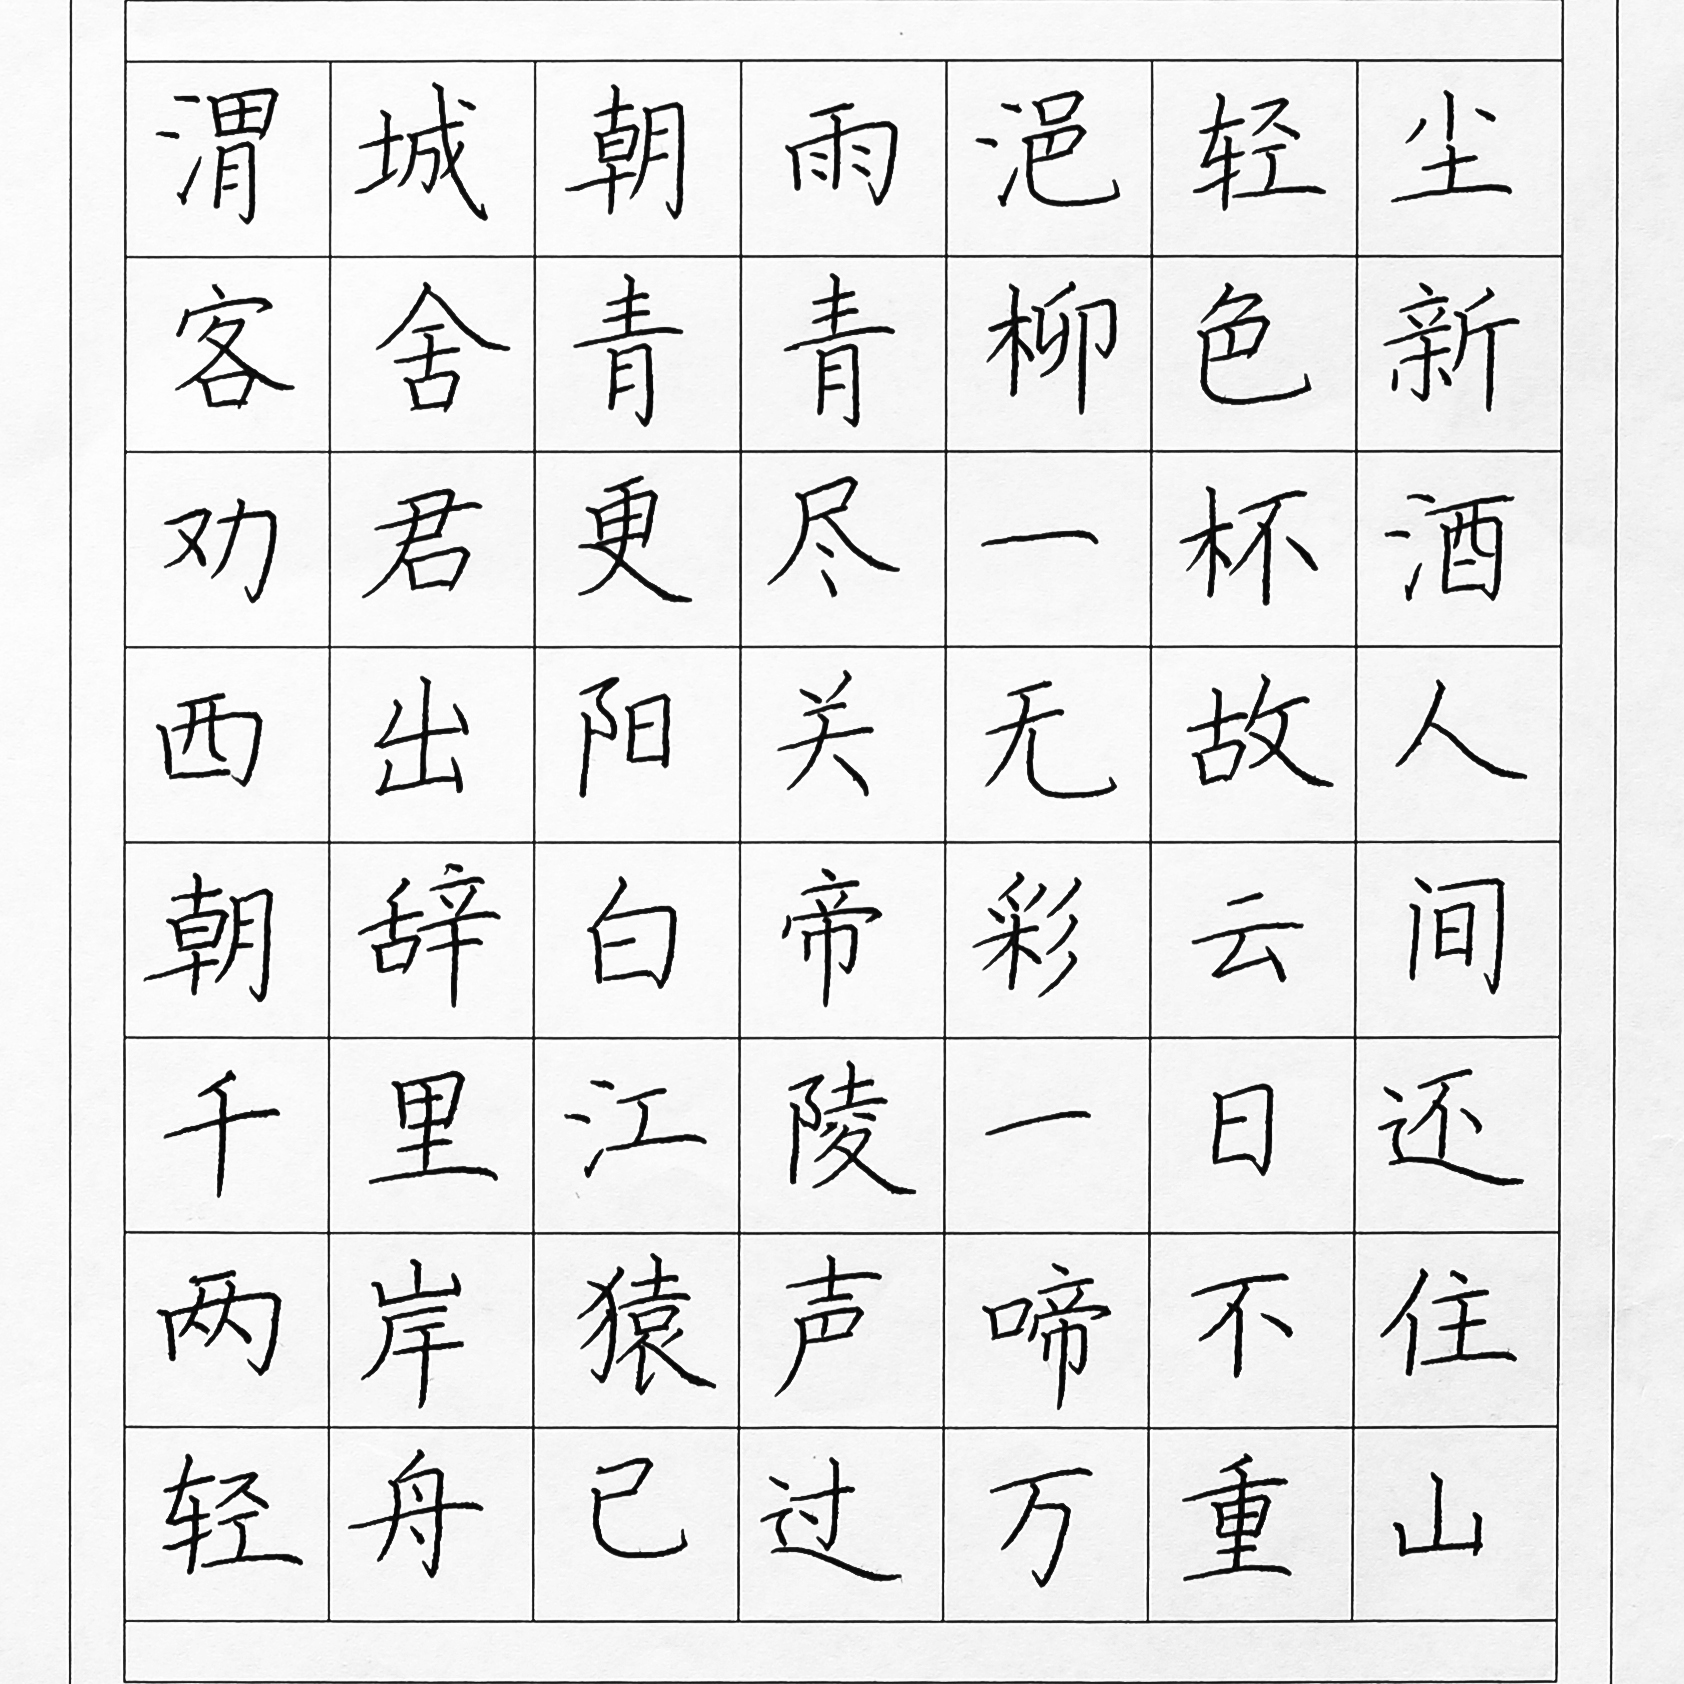 渭城朝雨浥轻尘
客舍青青柳色新
劝君更尽一杯酒
西出阳关无故人
朝辞白帝彩云间
千里江陵一日还
两岸猿声啼不住
轻舟已过万重山